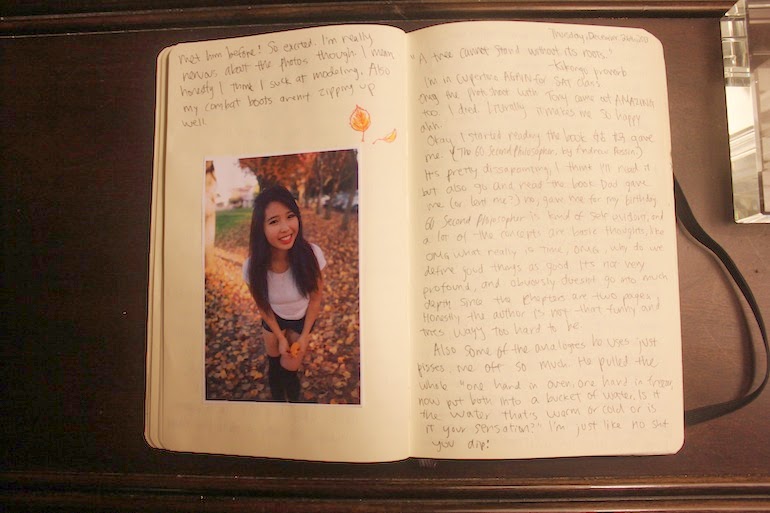 met him before! So excited. I'm really
nervous about the photos though I mean
honestly I think I suck at modeling. Also
my combat boots aren't zipping up
well.
Thursday, December 26th,
"A tree cannot stand without its roots."
proverb
I'm in Cupertino AGAIN for SAT class
Omg the photoshoot with Tony came out AMAZING
too. I died. Literally it makes me so happy
ahh.
Okay I started reading the book gave
me. (The 60 Second Philosopher, by Andrew Pessin)
It's pretty disappointing, I think I'll need it
but also go and read the book Dad gave
me (or lent me?) no, gave me for my birthday.
60 Second Philosopher is kind of and
a lot of the concepts are basic thoughts, like
OMG what really is time, OMG, why do we
define good things as good. It's not very
profound, and obviously doesn't go into much
depth since the chapters are two pages.
Honestly the author is not that funny and
tries wayyy too hard to be.
Also some of the analogies he uses just
pisses me off so much. He pulled the
whole "one hand in oven, one hand in freezer,
now put both into a bucket of water. Is it
the water that's warm or cold or is
it your sensation?" I'm just like no shit
you dip!